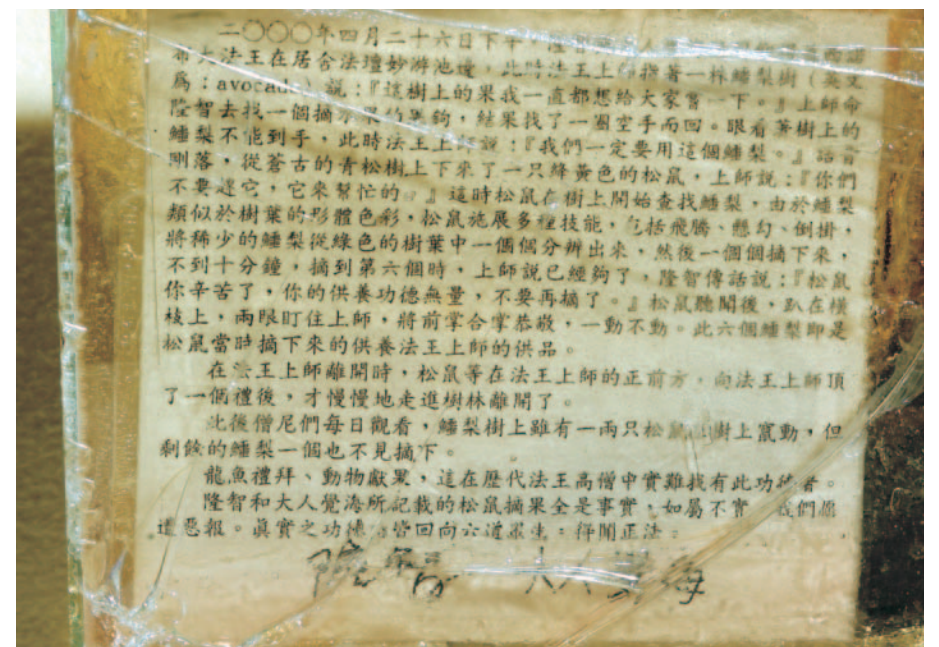 二〇〇〇年四月二十六日下午，隆
布大法王在居舍法壇妙游池邊，此時法王上師指著一株鱷梨樹（英文
爲：avocado）說：『這樹上的果我一直都想給大家嘗一下。』上師命
隆智去找一個摘水果的 鉤，結果找了一圈空手而回。眼看著樹上的
鱷梨不能到手，此時法王上師說：『我們一定要用這個鱷梨。』話音
剛落，從蒼古的青松樹上下來了一只絳黃色的松鼠，上師說：『你們
不要趕它，它來幫忙的。』這時松鼠在樹上開始查找鱷梨，由於鱷梨
類似於樹葉的形體色彩，松鼠施展多種技能，包括飛騰、懸勾、倒掛，
將稀少的鱷梨從綠色的樹葉中一個個分辨出來，然後一個個摘下來，
不到十分鐘，摘到第六個時，上師說已經夠了，隆智傳話說：『松鼠
你辛苦了，你的供養功德無量，不要再摘了。』松鼠聽聞後，趴在橫
枝上，兩眼盯住上師，將前掌合掌恭敬，一動不動。此六個鱷梨即是
松鼠當時摘下來的供養法王上師的供品。
在法王上師離開時，松鼠等在法王上師的正前方，向法王上師頂
了一個禮後，才慢慢地走進樹林離開了。
此後僧尼們每日觀看，鱷梨樹上雖有一兩只松鼠 樹上竄動，但
剩餘的鱷梨一個也不見摘下。
龍魚禮拜、動物獻果，這在歷代法王高僧中實難找有此功德者。
隆智和大人覺海所記載的松鼠摘果全是事實，如屬不實 我們愿
遭惡報。真實之功德 皆回向六道眾生：得聞正法。
隆智 大人覺海